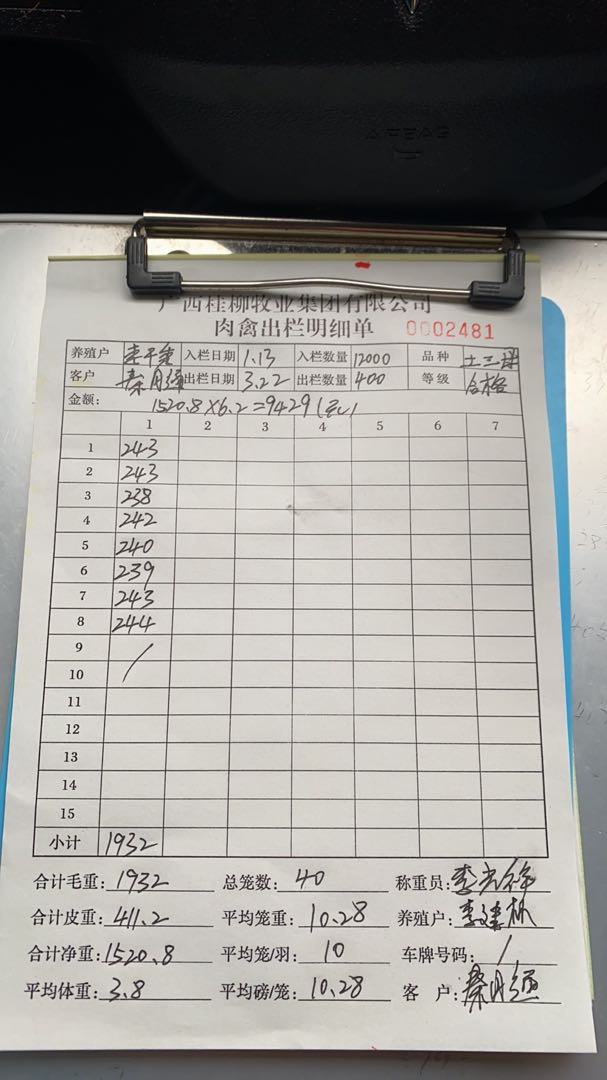 AIRBAG
广西桂柳牧业集团有限公司
肉禽出栏明细单 0002481
养殖户 入栏日期 1.13 入栏数量 12000 品种 土二
客户 秦月 出栏日期 3.22 出栏数量 400 等级 合格
金额: 1520.8×6.2=9429(元)
1 2 3 4 5 6 7
1 243
2 243
3 238
4 242
5 240
6 239
7 243
8 244
9 /
10
11
12
13
14
15
小计 1932
合计毛重: 1932 总笼数: 40 称重员: 李光
合计皮重: 411.2 平均笼重: 10.28 养殖户: 李建
合计净重: 1520.8 平均笼/羽: 10 车牌号码: /
平均体重: 3.8 平均磅/笼: 10.28 客 户: 秦月